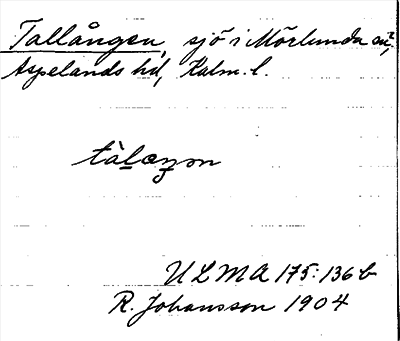 Tallången, sjö i Mörlunda sn,
Aspelands hd, Kalm. l.
tàlæŋon
ULMA 175:136b
R. Johansson 1904